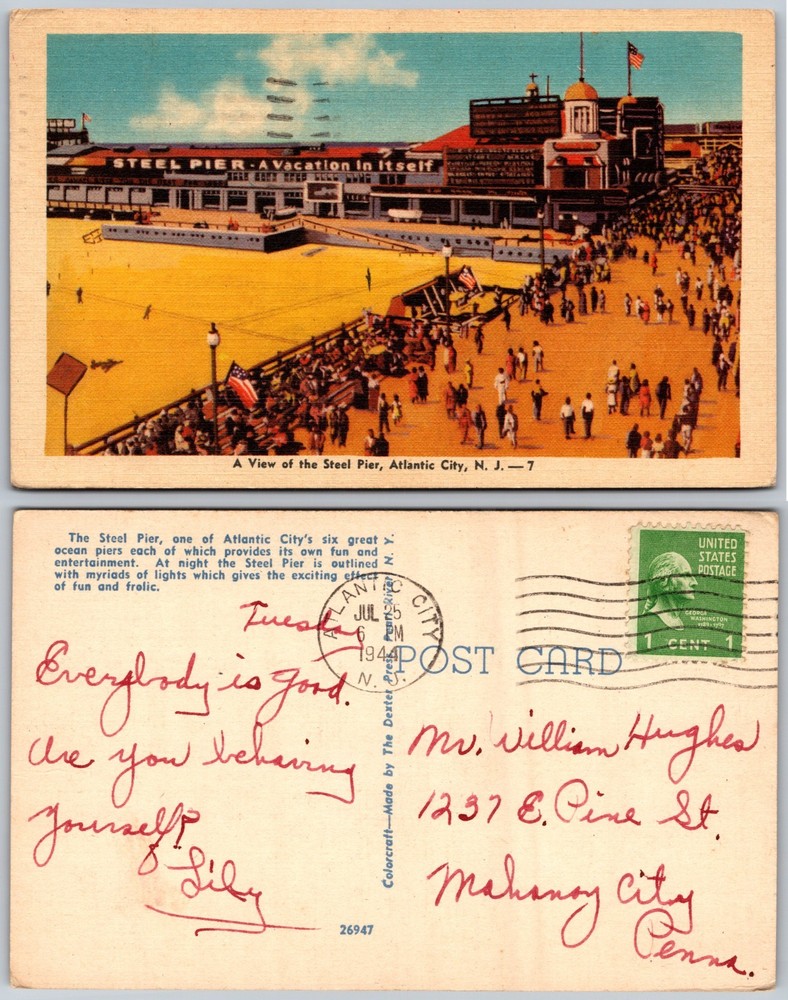 STEEL PIER - A Vacation in Itself
A View of the Steel Pier, Atlantic City, N. J. — 7
The Steel Pier, one of Atlantic City's six great
ocean piers each of which provides its own fun and
entertainment. At night the Steel Pier is outlined
with myriads of lights which gives the exciting effect
of fun and frolic.
Tuesday
Everybody is good.
Are you behaving
yourself?
Lily
26947
Colorcraft—Made by The Dexter Press, Pearl River, N. Y.
ATLANTIC CITY
JUL 25
6 PM
1944
N. J.
POST CARD
UNITED
STATES
POSTAGE
GEORGE
WASHINGTON
1 CENT 1
Mr. William Hughes
1237 E. Pine St.
Mahanoy City
Penna.